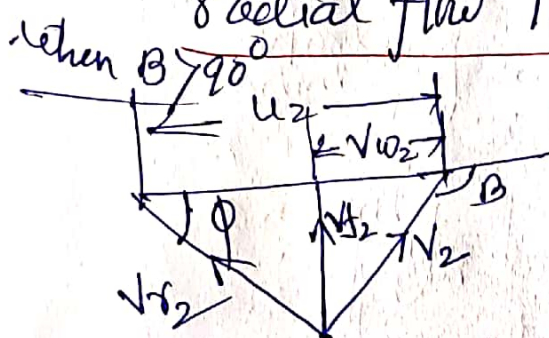 Radial flow
when B > 90°
u2
Vw2
B
ϕ
Vf2
V2
Vr2